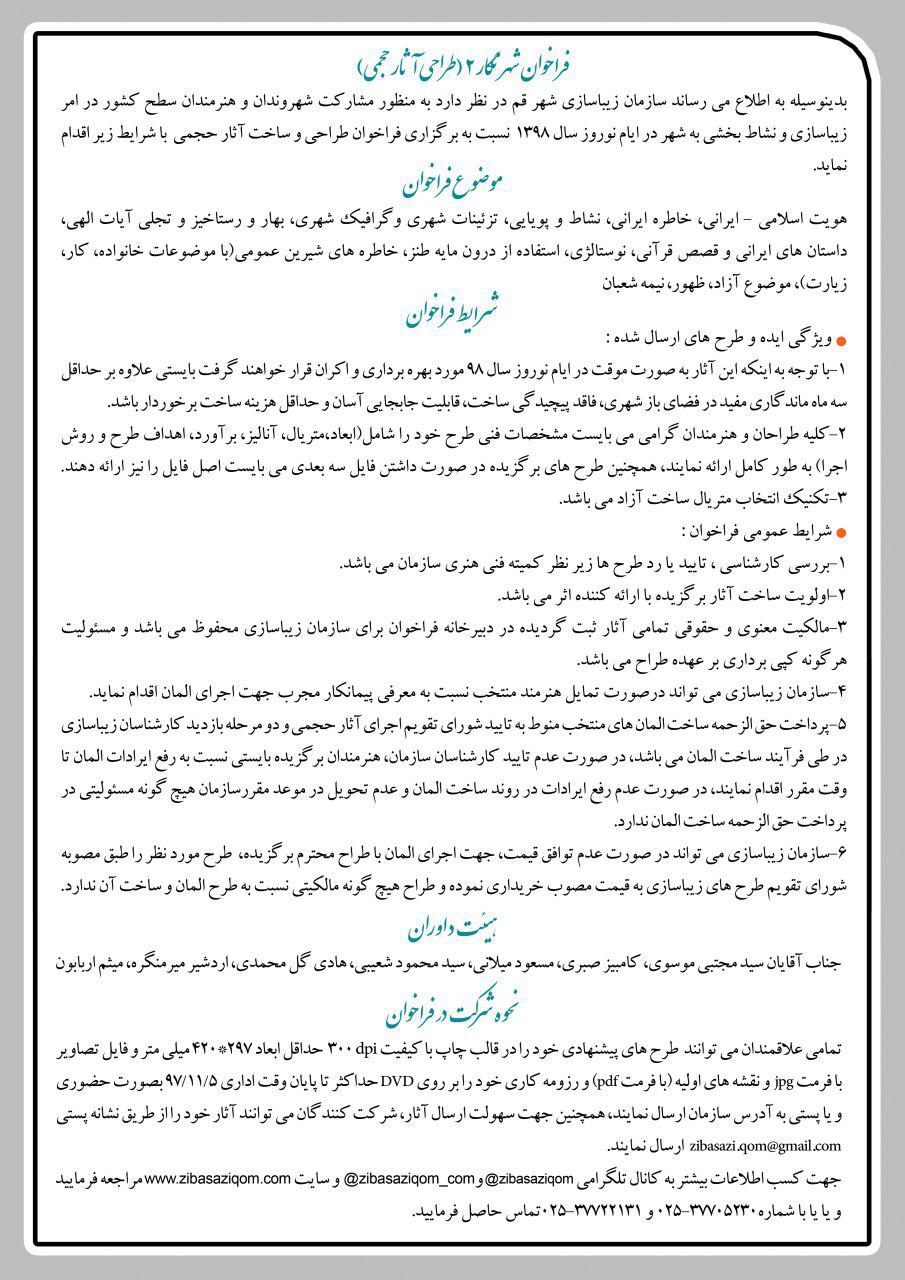 فراخوان شهر نگار ۲ (طراحی آثار حجمی)
بدینوسیله به اطلاع می رساند سازمان زیباسازی شهر قم در نظر دارد به منظور مشارکت شهروندان و هنرمندان سطح کشور در امر
زیباسازی و نشاط بخشی به شهر در ایام نوروز سال ۱۳۹۸ نسبت به برگزاری فراخوان طراحی و ساخت آثار حجمی با شرایط زیر اقدام
نماید.
موضوع فراخوان
هویت اسلامی - ایرانی، خاطره ایرانی، نشاط و پویایی، تزئینات شهری وگرافیک شهری، بهار و رستاخیز و تجلی آیات الهی،
داستان های ایرانی و قصص قرآنی، نوستالژی، استفاده از درون مایه طنز، خاطره های شیرین عمومی(با موضوعات خانواده، کار،
زیارت)، موضوع آزاد، ظهور، نیمه شعبان
شرایط فراخوان
● ویژگی ایده و طرح های ارسال شده :
۱-با توجه به اینکه این آثار به صورت موقت در ایام نوروز سال ۹۸ مورد بهره برداری و اکران قرار خواهند گرفت بایستی علاوه بر حداقل
سه ماه ماندگاری مفید در فضای باز شهری، فاقد پیچیدگی ساخت، قابلیت جابجایی آسان و حداقل هزینه ساخت برخوردار باشد.
۲-کلیه طراحان و هنرمندان گرامی می بایست مشخصات فنی طرح خود را شامل(ابعاد،متریال، آنالیز، برآورد، اهداف طرح و روش
اجرا) به طور کامل ارائه نمایند، همچنین طرح های برگزیده در صورت داشتن فایل سه بعدی می بایست اصل فایل را نیز ارائه دهند.
۳-تکنیک انتخاب متریال ساخت آزاد می باشد.
● شرایط عمومی فراخوان :
۱-بررسی کارشناسی ، تایید یا رد طرح ها زیر نظر کمیته فنی هنری سازمان می باشد.
۲-اولویت ساخت آثار برگزیده با ارائه کننده اثر می باشد.
۳-مالکیت معنوی و حقوقی تمامی آثار ثبت گردیده در دبیرخانه فراخوان برای سازمان زیباسازی محفوظ می باشد و مسئولیت
هرگونه کپی برداری بر عهده طراح می باشد.
۴-سازمان زیباسازی می تواند درصورت تمایل هنرمند منتخب نسبت به معرفی پیمانکار مجرب جهت اجرای المان اقدام نماید.
۵-پرداخت حق الزحمه ساخت المان های منتخب منوط به تایید شورای تقویم اجرای آثار حجمی و دو مرحله بازدید کارشناسان زیباسازی
در طی فرآیند ساخت المان می باشد، در صورت عدم تایید کارشناسان سازمان، هنرمندان برگزیده بایستی نسبت به رفع ایرادات المان تا
وقت مقرر اقدام نمایند، در صورت عدم رفع ایرادات در روند ساخت المان و عدم تحویل در موعد مقررسازمان هیچ گونه مسئولیتی در
پرداخت حق الزحمه ساخت المان ندارد.
۶-سازمان زیباسازی می تواند در صورت عدم توافق قیمت، جهت اجرای المان با طراح محترم برگزیده، طرح مورد نظر را طبق مصوبه
شورای تقویم طرح های زیباسازی به قیمت مصوب خریداری نموده و طراح هیچ گونه مالکیتی نسبت به طرح المان و ساخت آن ندارد.
هیئت داوران
جناب آقایان سید مجتبی موسوی، کامبیز صبری، مسعود میلانی، سید محمود شعیبی، هادی گل محمدی، اردشیر میرمنگره، میثم اربابون
نحوه شرکت در فراخوان
تمامی علاقمندان می توانند طرح های پیشنهادی خود را در قالب چاپ با کیفیت ۳۰۰ dpi حداقل ابعاد ۲۹۷*۴۲۰ میلی متر و فایل تصاویر
با فرمت jpg و نقشه های اولیه (با فرمت pdf) و رزومه کاری خود را بر روی DVD حداکثر تا پایان وقت اداری ۹۷/۱۱/۵ بصورت حضوری
و یا پستی به آدرس سازمان ارسال نمایند، همچنین جهت سهولت ارسال آثار، شرکت کنندگان می توانند آثار خود را از طریق نشانه پستی
zibasazi.qom@gmail.com ارسال نمایند.
جهت کسب اطلاعات بیشتر به کانال تلگرامی @zibasaziqom و @zibasaziqom_com و سایت www.zibasaziqom.com مراجعه فرمایید
و یا یا با شماره ۳۷۷۰۵۲۳۰-۰۲۵ و ۳۷۷۲۲۱۳۱-۰۲۵ تماس حاصل فرمایید.